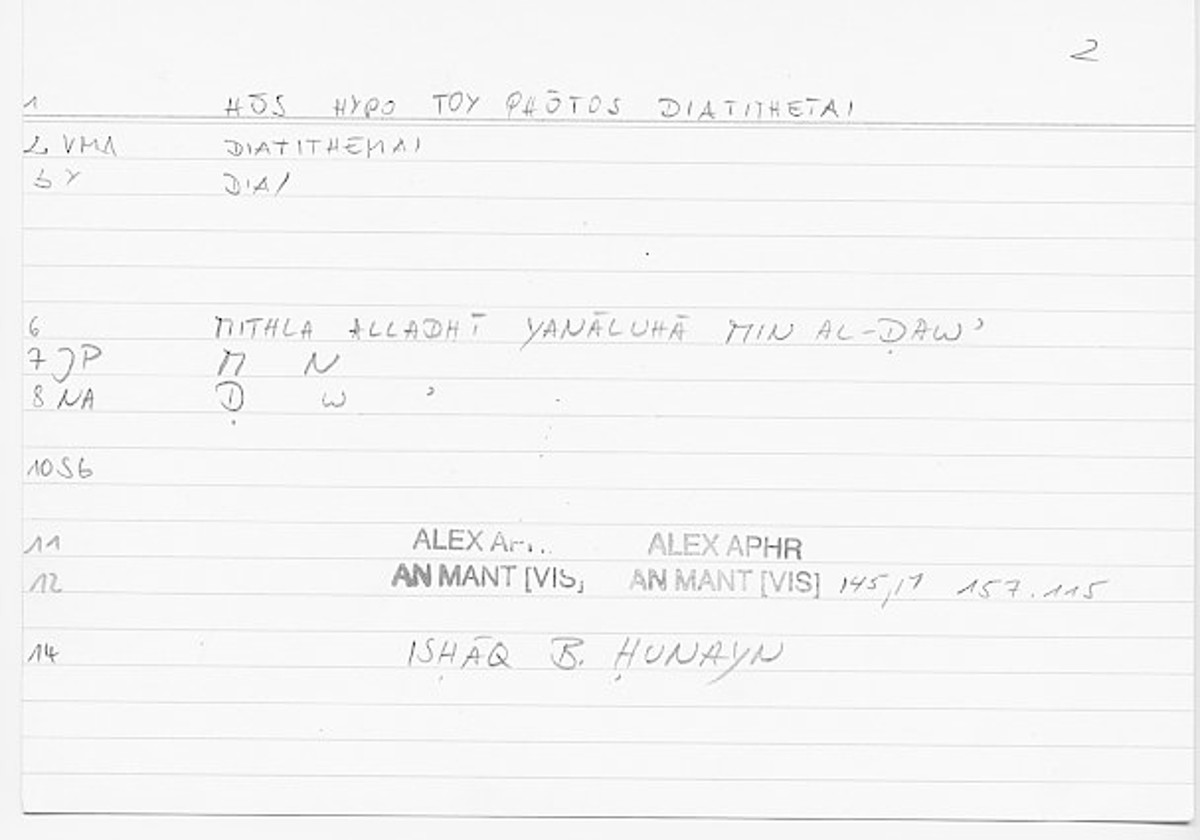 2
1 HŌS HYPO TOY PHŌTOS DIATITHETAI
2 VMA DIATITHEMAI
5 Y DIA/
6 MITHLA ALLADHĪ YANĀLUHĀ MIN AL-ḌAWʾ
7 JP M N
8 NA Ḍ W ʾ
10 S6
11 ALEX APHR
12 AN MANT [VIS] AN MANT [VIS] 145,17 157.115
14 ISḤĀQ B. ḤUNAYN